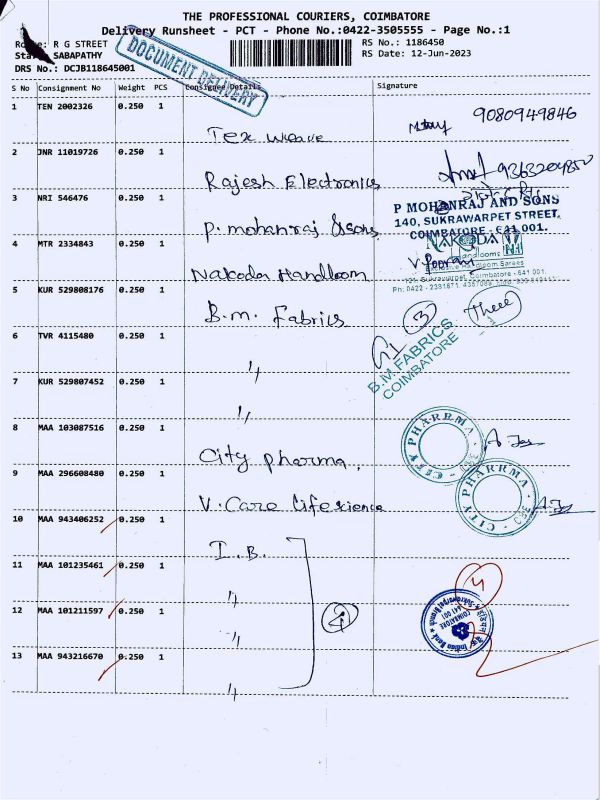 THE PROFESSIONAL COURIERS, COIMBATORE
Delivery Runsheet - PCT - Phone No.:0422-3505555 - Page No.:1
Route: R G STREET
RS No.: 1186450
Staff: SABAPATHY
RS Date: 12-Jun-2023
DRS No.: DCJB118645001
DOCUMENT DELIVERY
S No Consignment No Weight PCS Consignee Details Signature
1 TEN 2002326 0.250 1 Tex Weave 9080949846
2 JNR 11019726 0.250 1 Rajesh Electronics
3 NRI 546476 0.250 1 P. mohanraj &sons
P MOHANRAJ AND SONS
140, SUKRAWARPET STREET,
COIMBATORE - 641 001.
4 MTR 2334843 0.250 1 Nakoda Handloom
NAKODA
V. Poorani
5 KUR 529808176 0.250 1 B.m. Fabrics
3
Three
B.M. FABRICS
COIMBATORE
6 TVR 4115480 0.250 1 〃
7 KUR 529807452 0.250 1 〃
8 MAA 103087516 0.250 1 City pharma.
CITY PHARRMA
CBE
9 MAA 296608480 0.250 1 V. Care lifesience
CITY PHARRMA
CBE
10 MAA 943406252 0.250 1 I.B.
11 MAA 101235461 0.250 1 〃
4
12 MAA 101211597 0.250 1 〃
4
Indian Bank
Sukrawarpet Branch
COIMBATORE
641 001
13 MAA 943216670 0.250 1 〃